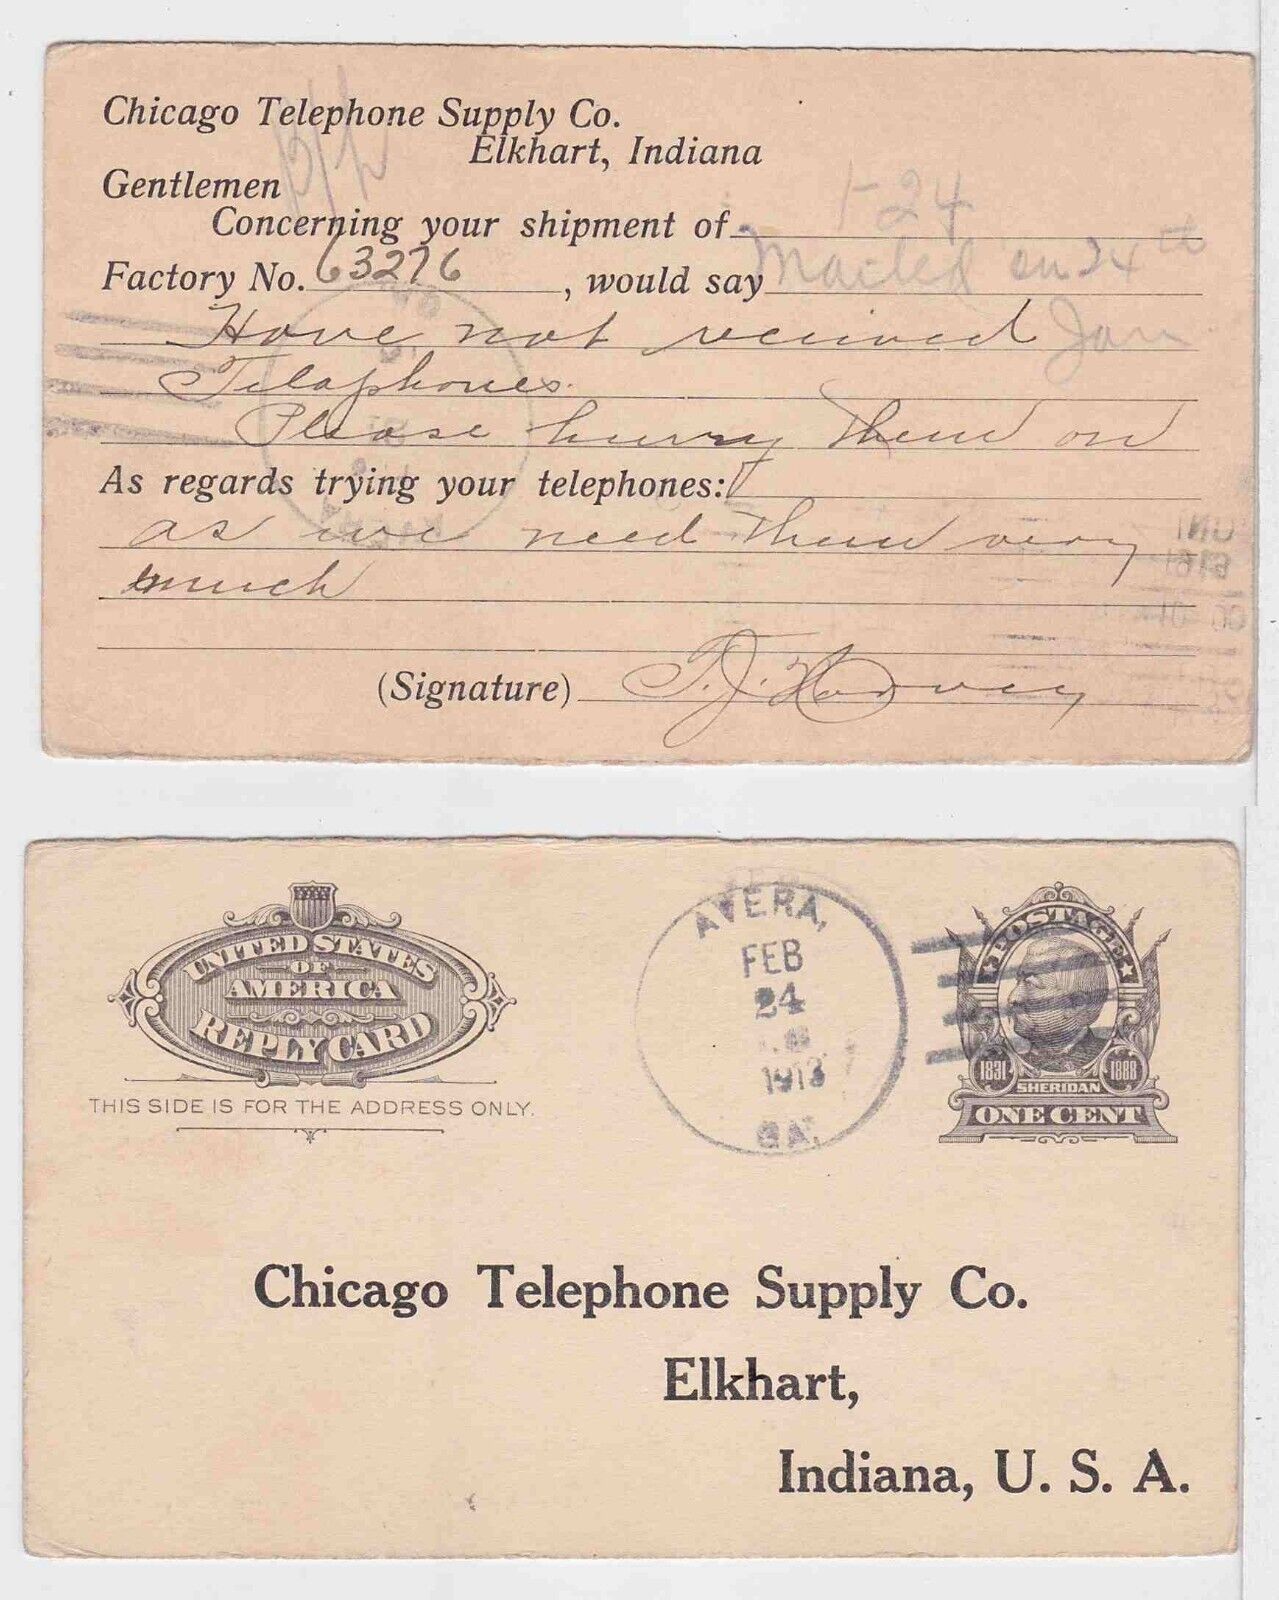 Chicago Telephone Supply Co.
Elkhart, Indiana
Gentlemen
Concerning your shipment of 1-24
Factory No. 63276, would say Mailed on 24th
Have not received Jan
Telaphones.
Please hurry them on
As regards trying your telephones:
as we need them very
much
(Signature) T. J. Harvey
UNITED STATES
OF
AMERICA
REPLY CARD
THIS SIDE IS FOR THE ADDRESS ONLY.
AVERA,
FEB
24
1913
GA.
POSTAGE
1831 1888
SHERIDAN
ONE CENT
Chicago Telephone Supply Co.
Elkhart,
Indiana, U. S. A.